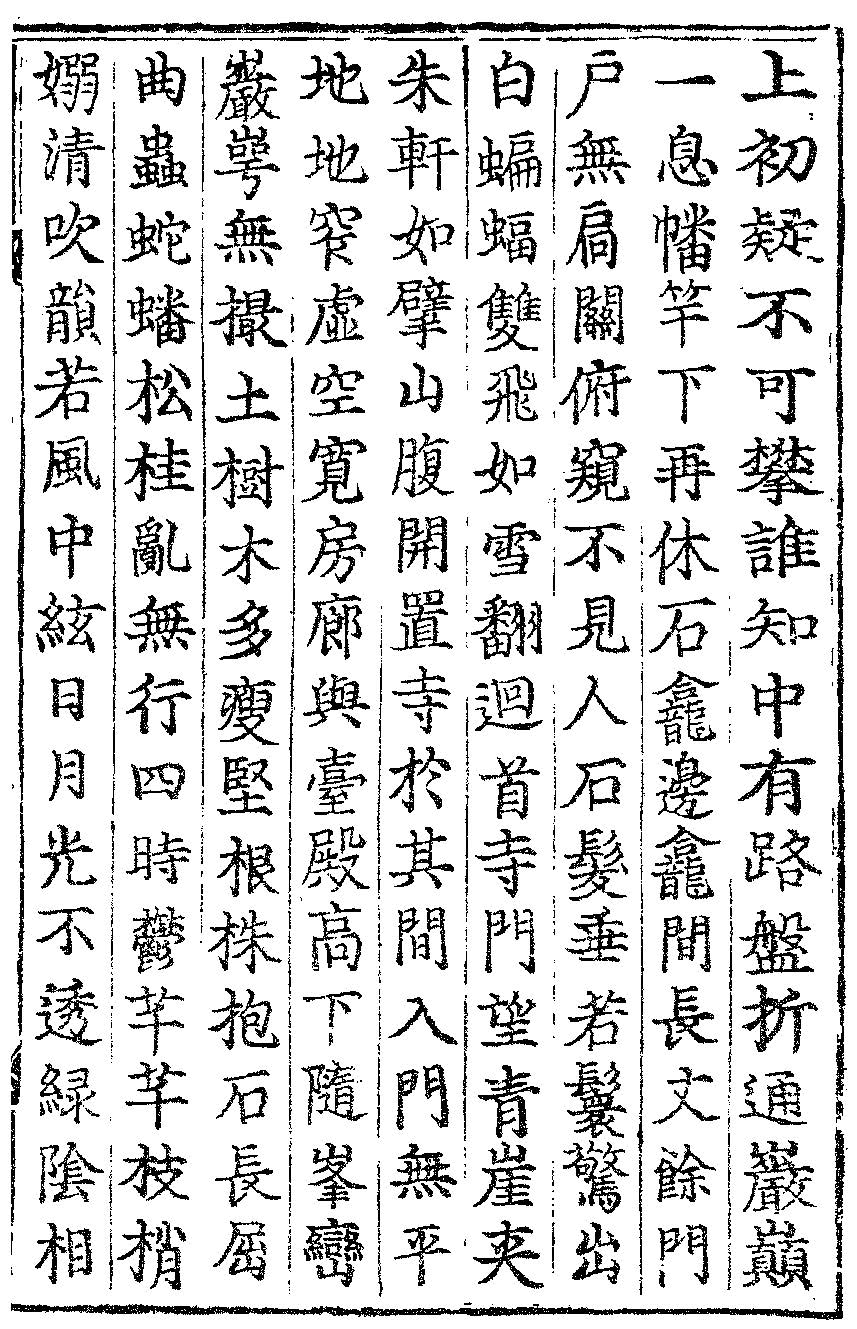 上初疑不可攀誰知中有路盤折通巖巔
一息幡竿下再休石龕邊龕間長丈餘門
户無扃關俯窺不見人石髮垂若鬟驚出
白蝙蝠雙飛如雪翻迴首寺門望青崖夾
朱軒如擘山腹開置寺於其間入門無平
地地窄虚空寛房廊與臺殿高下隨峯巒
巖崿無撮土樹木多瘦堅根株抱石長屈
曲蟲蛇蟠松桂亂無行四時鬱芊芊枝梢
嫋清吹韻若風中絃日月光不透緑隂相